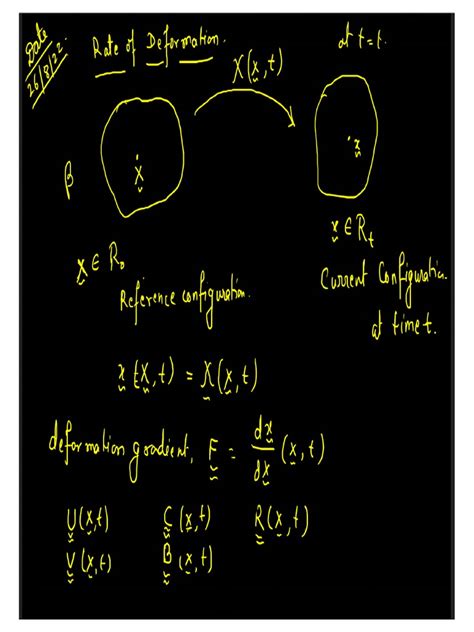 Date
26/8/22.
Rate of Deformation.
at t=t.
X(x,t)
β
X
x
x ∈ R₀
x ∈ Rₜ
Reference configuration.
Current Configuration.
at time t.
x (X,t) = X(x,t)
deformation gradient, F = dx/dx (x,t)
U(x,t) C(x,t) R(x,t)
V(x,t) B(x,t)